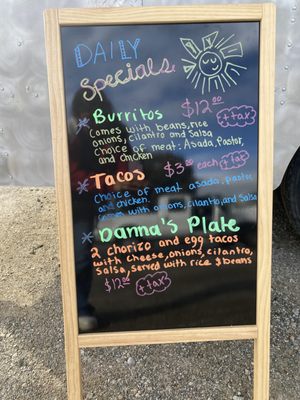 DAILY
Specials
Burritos $12.00
+ tax
Comes with beans, rice
onions, cilantro and Salsa
Choice of meat: Asada, Pastor,
and chicken
Tacos $3.00 each + tax
Choice of meat asada, pastor
and chicken.
comes with onions, cilantro, and Salsa
Danna's Plate
2 chorizo and egg tacos
with cheese, onions, cilantro,
salsa, served with rice & beans
$12.00 + tax